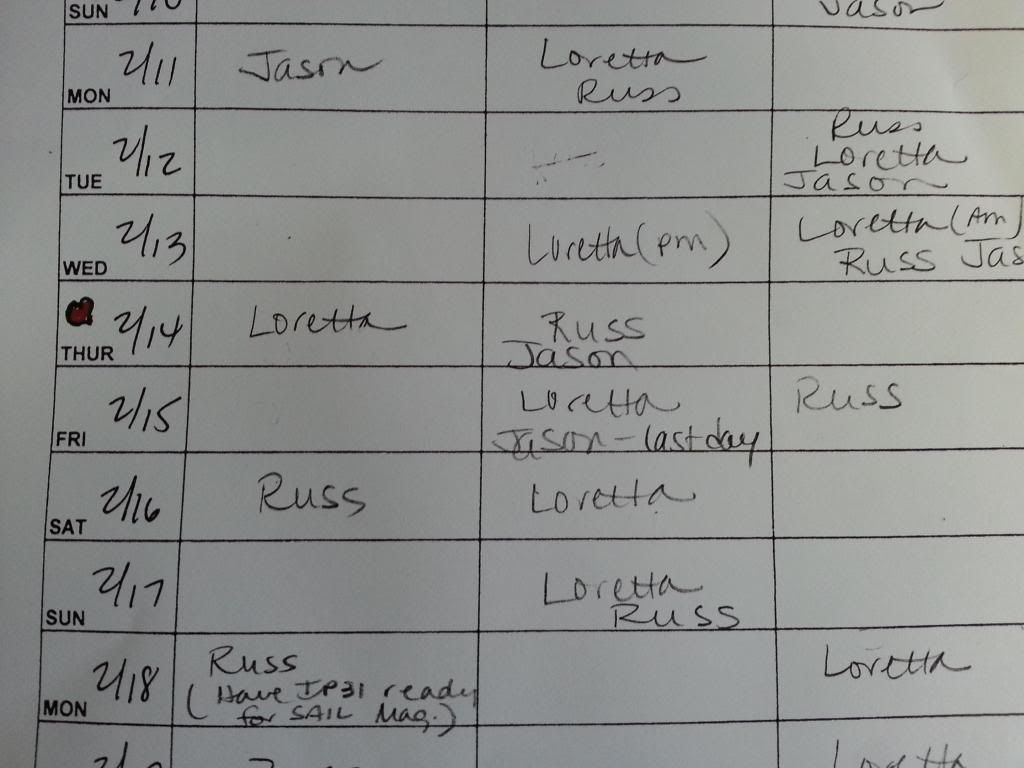 SUN 2/10 Jason
2/11 Jason Loretta
MON Russ
Russ
2/12 Loretta
TUE Jason
2/13 Loretta (pm) Loretta (Am)
WED Russ Jas
2/14 Loretta Russ
THUR Jason
2/15 Loretta Russ
FRI Jason - last day
2/16 Russ Loretta
SAT
2/17 Loretta
SUN Russ
2/18 Russ Loretta
(Have IP31 ready
MON for SAIL Mag.)
Loretta